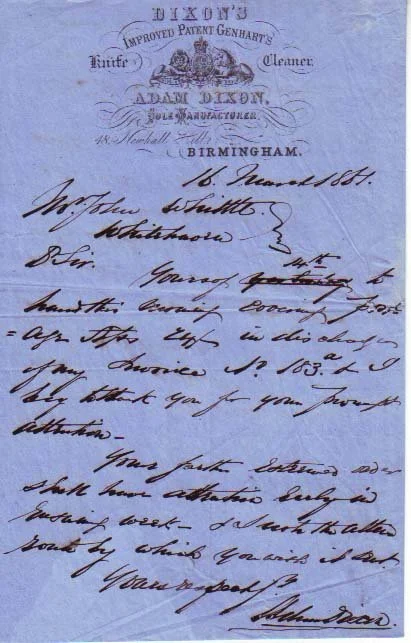 DIXON'S
IMPROVED PATENT GENHART'S
Knife Cleaner.
ADAM DIXON,
SOLE MANUFACTURER,
48, Newhall Hill,
BIRMINGHAM.
16 March 1861.
Mr. John Whittle
Whitehaven
D Sir.
Yours of 14th to
hand this evening
in discharge
of my Invoice No. 183a & I
beg to thank you for your prompt
attention —
Your further Esteemed order
shall have attention Early in
Ensuing week — & I note the
route by which you wish it sent.
Yours respecty.
Adam Dixon